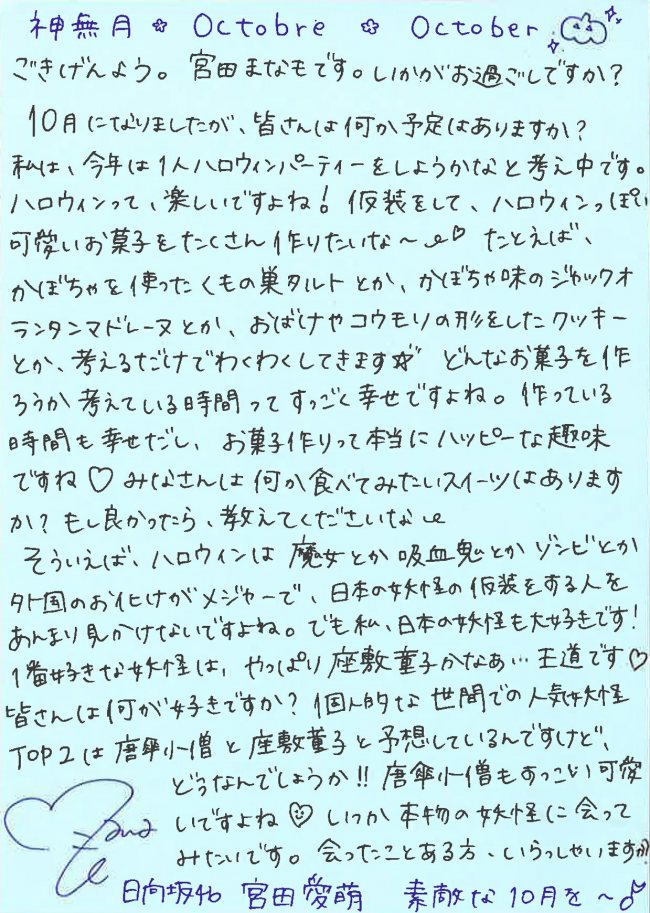 神無月 ✿ Octobre ✿ October
ごきげんよう。宮田まなもです。いかがお過ごしですか?
10月になりましたが、皆さんは何か予定はありますか?
私は、今年は1人ハロウィンパーティーをしようかなと考え中です。
ハロウィンって、楽しいですよね! 仮装をして、ハロウィンっぽい
可愛いお菓子をたくさん作りたいな〜♡ たとえば、
かぼちゃを使ったくもの巣タルトとか、かぼちゃ味のジャックオ
ランタンマドレーヌとか、おばけやコウモリの形をしたクッキー
とか、考えるだけでわくわくしてきます☆ どんなお菓子を作
ろうか考えている時間ってすっごく幸せですよね。作っている
時間も幸せだし、お菓子作りって本当にハッピーな趣味
ですね♡ みなさんは何か食べてみたいスイーツはあります
か? もし良かったら、教えてくださいな
そういえば、ハロウィンは魔女とか吸血鬼とかゾンビとか
外国のお化けがメジャーで、日本の妖怪の仮装をする人を
あんまり見かけないですよね。でも私、日本の妖怪も大好きです!
1番好きな妖怪は、やっぱり座敷童子かなあ…王道です♡
皆さんは何が好きですか? 個人的な世間での人気妖怪
TOP2は唐傘小僧と座敷童子と予想しているんですけど、
どうなんでしょうか!! 唐傘小僧もすっごい可愛
いですよね♡ いつか本物の妖怪に会って
みたいです。会ったことある方、いらっしゃいますか?
日向坂46 宮田愛萌 素敵な10月を〜♪